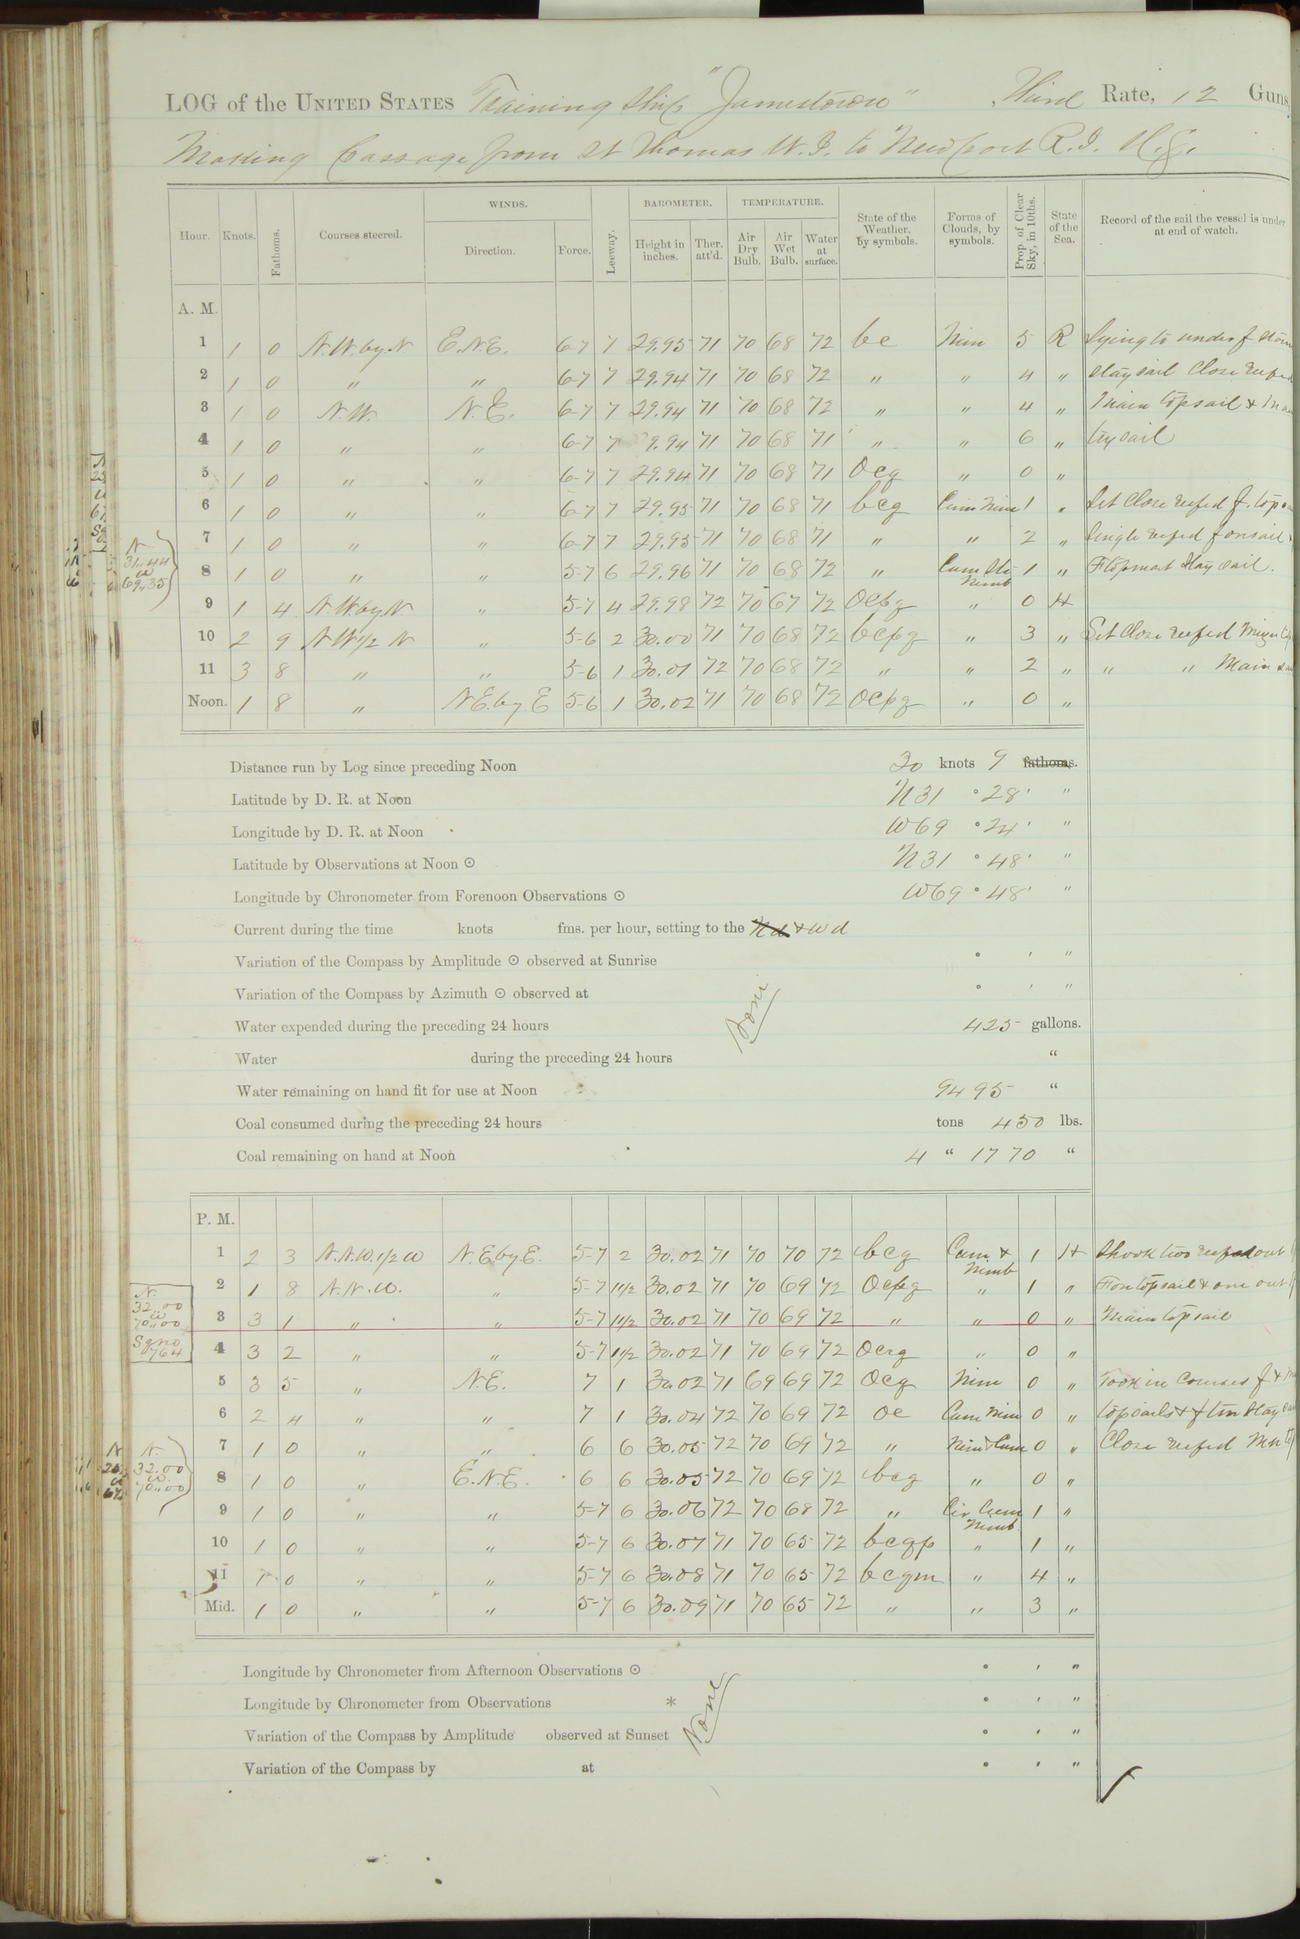 LOG of the UNITED STATES Training Ship "Jamestown" Third Rate, 12 Guns,
Making Passage from St Thomas W.I. to Newport R.I. U.S.
Hour. Knots. Fathoms. Courses steered. WINDS. Direction. Force. Leeway. BAROMETER. Height in inches. Ther. att'd. TEMPERATURE. Air Dry Bulb. Air Wet Bulb. Water at surface. State of the Weather, by symbols. Forms of Clouds, by symbols. Prop. of Clear Sky, in 10ths. State of the Sea. Record of the sail the vessel is under at end of watch.
A. M.
1 1 0 N.W. by N E.N.E. 6-7 7 29.95 71 70 68 72 bc Nim 5 R Lying to under f storm
2 1 0 " " 6-7 7 29.94 71 70 68 72 " " 4 " staysail Close reefed
3 1 0 N.W. N.E. 6-7 7 29.94 71 70 68 72 " " 4 " Main topsail & Main
4 1 0 " " 6-7 7 9.94 71 70 68 71 " " 6 " try sail
5 1 0 " " 6-7 7 29.94 71 70 68 71 ocq " 0 "
6 1 0 " " 6-7 7 29.95 71 70 68 71 bcq Cum Nim 1 " Set Close reefed f. top
7 1 0 " " 6-7 7 29.95 71 70 68 71 " " 2 " Single reefed foresail &
8 1 0 " " 5-7 6 29.96 71 70 68 72 " Cum Str Nimb 1 " F topmast Stay sail.
9 1 4 N.W by N " 5-7 4 29.98 72 70 67 72 ocpq " 0 H
10 2 9 N W 1/2 N " 5-6 2 30.00 71 70 68 72 bcpq " 3 " Set Close reefed Mizen top
11 3 8 " " 5-6 1 30.01 72 70 68 72 " " 2 " " " Main
Noon. 1 8 " N.E. by E 5-6 1 30.02 71 70 68 72 ocpq " 0 "
Distance run by Log since preceding Noon 30 knots 9 fathoms.
Latitude by D. R. at Noon N 31 ° 28 ' "
Longitude by D. R. at Noon W 69 ° 24 ' "
Latitude by Observations at Noon ⊙ N 31 ° 48 ' "
Longitude by Chronometer from Forenoon Observations ⊙ W 69 ° 48 ' "
Current during the time knots fms. per hour, setting to the Nd & Wd
Variation of the Compass by Amplitude ⊙ observed at Sunrise ° ' "
Variation of the Compass by Azimuth ⊙ observed at ° ' "
None
Water expended during the preceding 24 hours 425 gallons.
Water during the preceding 24 hours "
Water remaining on hand fit for use at Noon 9495 "
Coal consumed during the preceding 24 hours tons 450 lbs.
Coal remaining on hand at Noon 4 " 1770 "
P. M.
1 2 3 N.N.W. 1/2 W N.E. by E. 5-7 2 30.02 71 70 70 72 bcq Cum & Nimb 1 H Shook two reefs out
2 1 8 N.N.W. " 5-7 1 1/2 30.02 71 70 69 72 ocpq " 1 " Fore topsail & one out
3 3 1 " " 5-7 1 1/2 30.02 71 70 69 72 " " 0 " Main topsail
4 3 2 " " 5-7 1 1/2 30.02 71 70 69 72 ocrq " 0 "
5 3 5 " N.E. 7 1 30.02 71 69 69 72 ocq Nim 0 " Took in Courses f &
6 2 4 " " 7 1 30.04 72 70 69 72 oc Cum Nim 0 " topsails & f tm Stay
7 1 0 " " 6 6 30.05 72 70 69 72 " Nim & Cum 0 " Close reefed Mn
8 1 0 " E.N.E. 6 6 30.05 72 70 69 72 bcq " 0 "
9 1 0 " " 5-7 6 30.06 72 70 68 72 " Cir Cum Nimb 1 "
10 1 0 " " 5-7 6 30.07 71 70 65 72 bcqp " 1 "
11 1 0 " " 5-7 6 30.08 71 70 65 72 bcqm " 4 "
Mid. 1 0 " " 5-7 6 30.09 71 70 65 72 " " 3 "
Longitude by Chronometer from Afternoon Observations ⊙ ° ' "
Longitude by Chronometer from Observations * ° ' "
Variation of the Compass by Amplitude observed at Sunset ° ' "
Variation of the Compass by at ° ' "
None
N
31.44
W
69.35
N.
32.00
W
70.00
Sq no
764
N.
32.00
W.
70.00